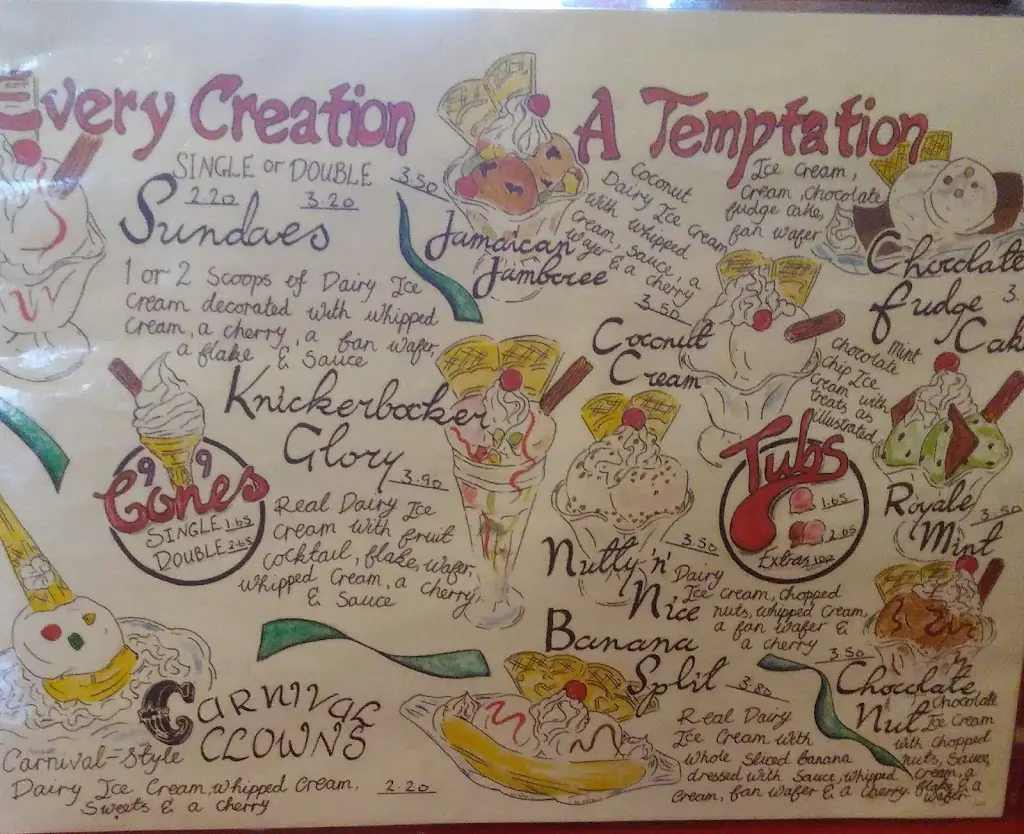 Every Creation
A Temptation
SINGLE or DOUBLE
2.20 3.20
Sundaes
1 or 2 Scoops of Dairy Ice
Cream decorated with whipped
Cream, a cherry, a fan wafer,
a flake & Sauce
3.50
Jamaican
Jamboree
Coconut
Dairy Ice Cream
with whipped
Cream, sauce, a
wafer & a cherry
3.50
Coconut
Cream
Ice Cream,
Cream, chocolate
fudge cake,
fan wafer
Chocolate
fudge 3.
Cake
Knickerbocker
Glory
3.90
Real Dairy Ice
Cream with fruit
cocktail, flake, wafer,
whipped Cream, a cherry
& Sauce
99
Cones
SINGLE 1.65
DOUBLE 2.65
Mint
chocolate
chip Ice
Cream with
treats as
illustrated
Royale
3.50
Mint
Tubs
1.65
2.65
Extras
Nutty 'n'
3.50
Nice
Dairy
Ice Cream, chopped
nuts, whipped Cream,
a fan wafer &
a cherry
Banana
Split
3.80
Real Dairy
Ice Cream with
whole Sliced Banana
dressed with Sauce, whipped
Cream, fan wafer & a cherry
3.50
Chocolate
Nut
Chocolate
Ice Cream
with chopped
nuts, Sauce,
Cream, a
flake & a
wafer
Carnival
CLOWNS
Carnival-Style
Dairy Ice Cream, whipped Cream.
Sweets & a cherry
2.20